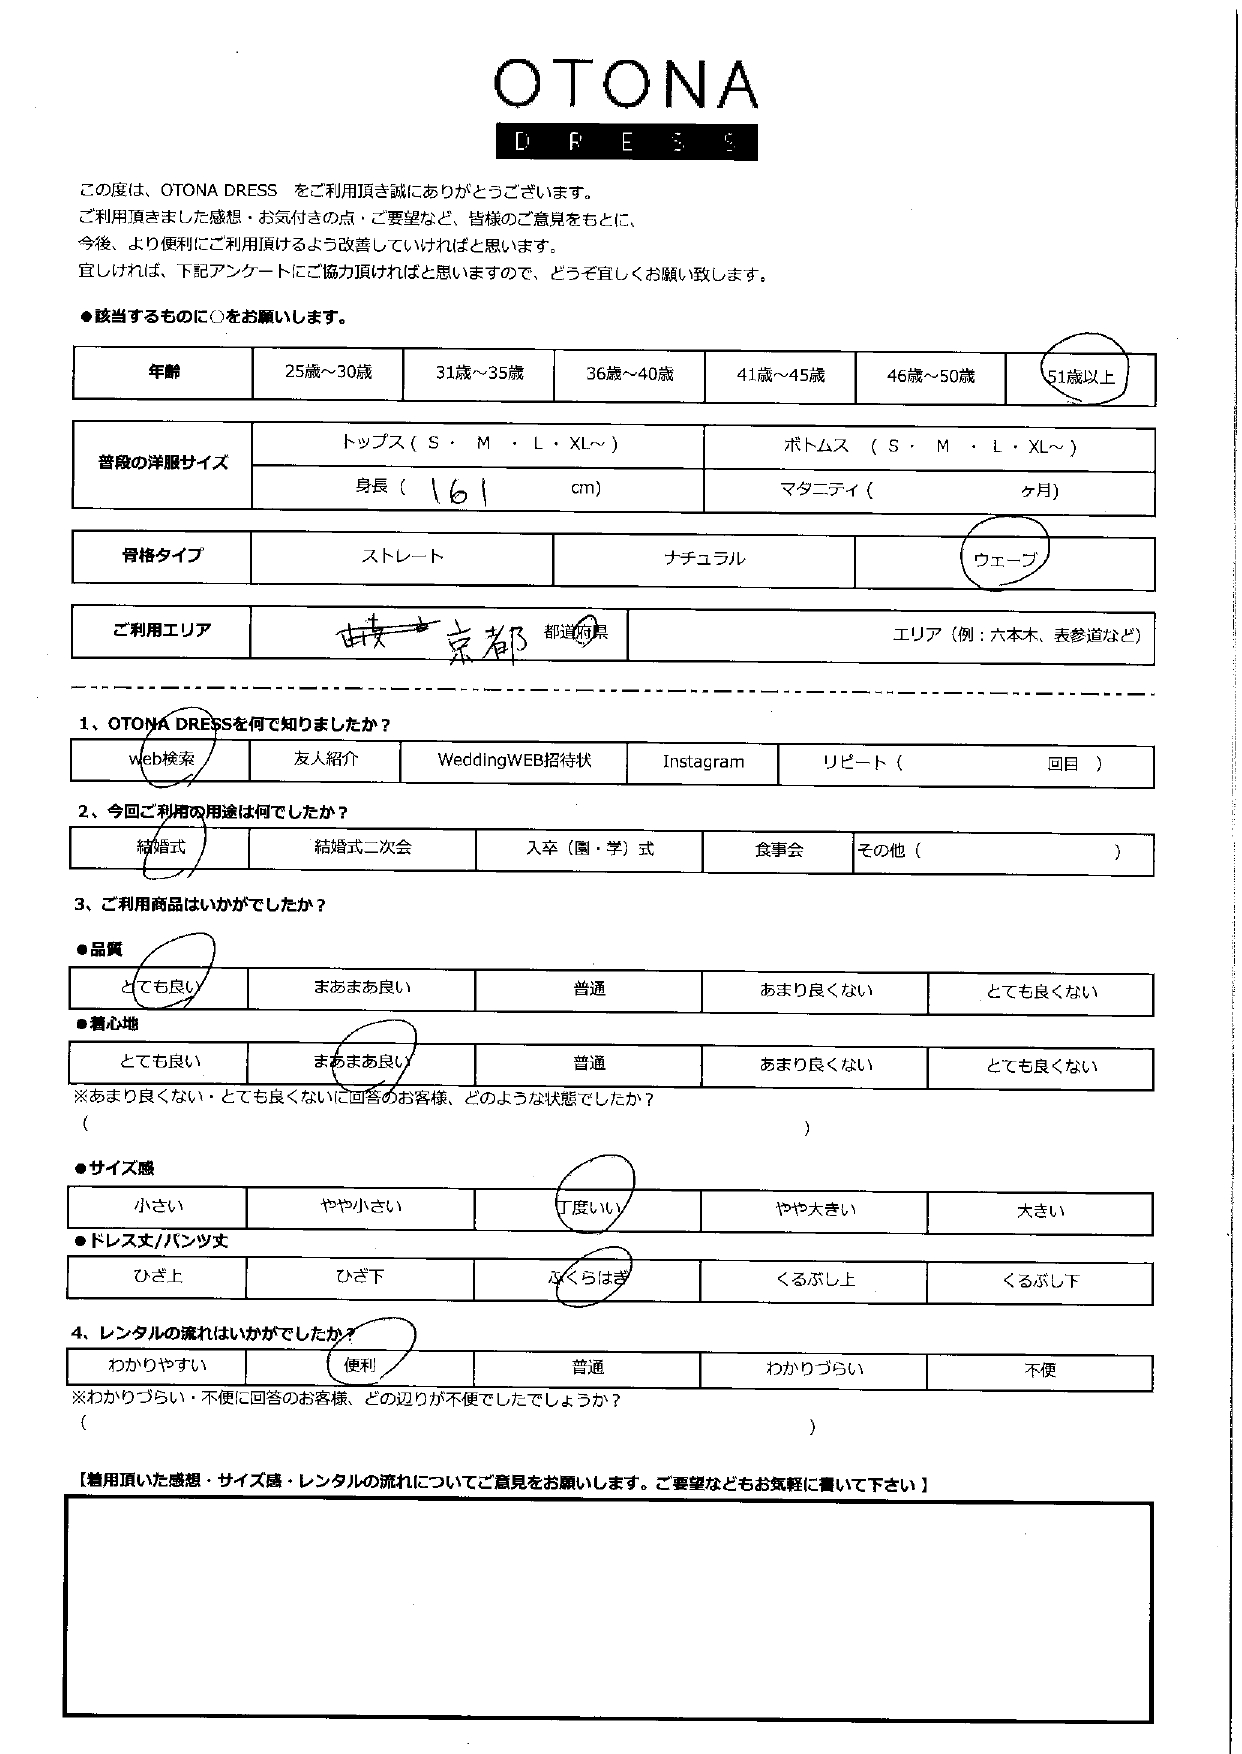 OTONA
DRESS
この度は、OTONA DRESS　をご利用頂き誠にありがとうございます。
ご利用頂きました感想・お気付きの点・ご要望など、皆様のご意見をもとに、
今後、より便利にご利用頂けるよう改善していければと思います。
宜しければ、下記アンケートにご協力頂ければと思いますので、どうぞ宜しくお願い致します。
●該当するものに○をお願いします。
年齢 25歳～30歳 31歳～35歳 36歳～40歳 41歳～45歳 46歳～50歳 51歳以上
普段の洋服サイズ
トップス ( S ・ M ・ L ・ XL～ ) ボトムス ( S ・ M ・ L ・ XL～ )
身長 ( 161 cm) マタニティ ( ヶ月)
骨格タイプ ストレート ナチュラル ウェーブ
ご利用エリア 京都 都道府県 エリア（例：六本木、表参道など）
1、OTONA DRESSを何で知りましたか？
web検索 友人紹介 WeddingWEB招待状 Instagram リピート（ 回目 ）
2、今回ご利用の用途は何でしたか？
結婚式 結婚式二次会 入卒（園・学）式 食事会 その他（ ）
3、ご利用商品はいかがでしたか？
●品質
とても良い まあまあ良い 普通 あまり良くない とても良くない
●着心地
とても良い まあまあ良い 普通 あまり良くない とても良くない
※あまり良くない・とても良くないに回答のお客様、どのような状態でしたか？
( )
●サイズ感
小さい やや小さい 丁度いい やや大きい 大きい
●ドレス丈/パンツ丈
ひざ上 ひざ下 ふくらはぎ くるぶし上 くるぶし下
4、レンタルの流れはいかがでしたか？
わかりやすい 便利 普通 わかりづらい 不便
※わかりづらい・不便に回答のお客様、どの辺りが不便でしたでしょうか？
( )
【着用頂いた感想・サイズ感・レンタルの流れについてご意見をお願いします。ご要望などもお気軽に書いて下さい 】